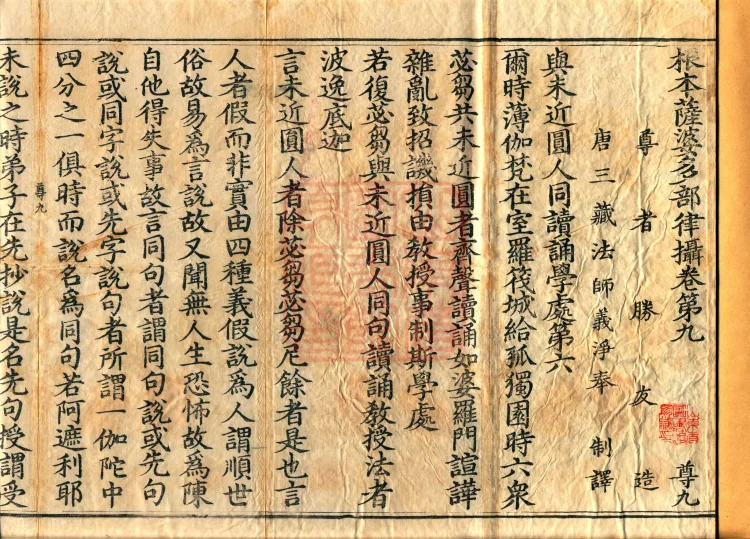 根本薩婆多部律攝卷第九 尊九
尊者勝友造
唐三藏法師義淨奉 制譯
與未近圓人同讀誦學處第六
爾時薄伽梵在室羅筏城給孤獨園時六衆
苾芻共未近圓者齊聲讀誦如婆羅門諠譁
雜亂致招譏損由教授事制斯學處
若復苾芻與未近圓人同句讀誦教授法者
波逸底迦
言未近圓人者除苾芻苾芻尼餘者是也言
人者假而非實由四種義假說為人謂順世
俗故易為言說故又聞無人生恐怖故為陳
自他得失事故言同句者謂同句說或先句
說或同字說或先字說句者所謂一伽陀中
四分之一俱時而說名為同句若阿遮利耶
尊九
未說之時弟子在先抄說是名先句授謂受